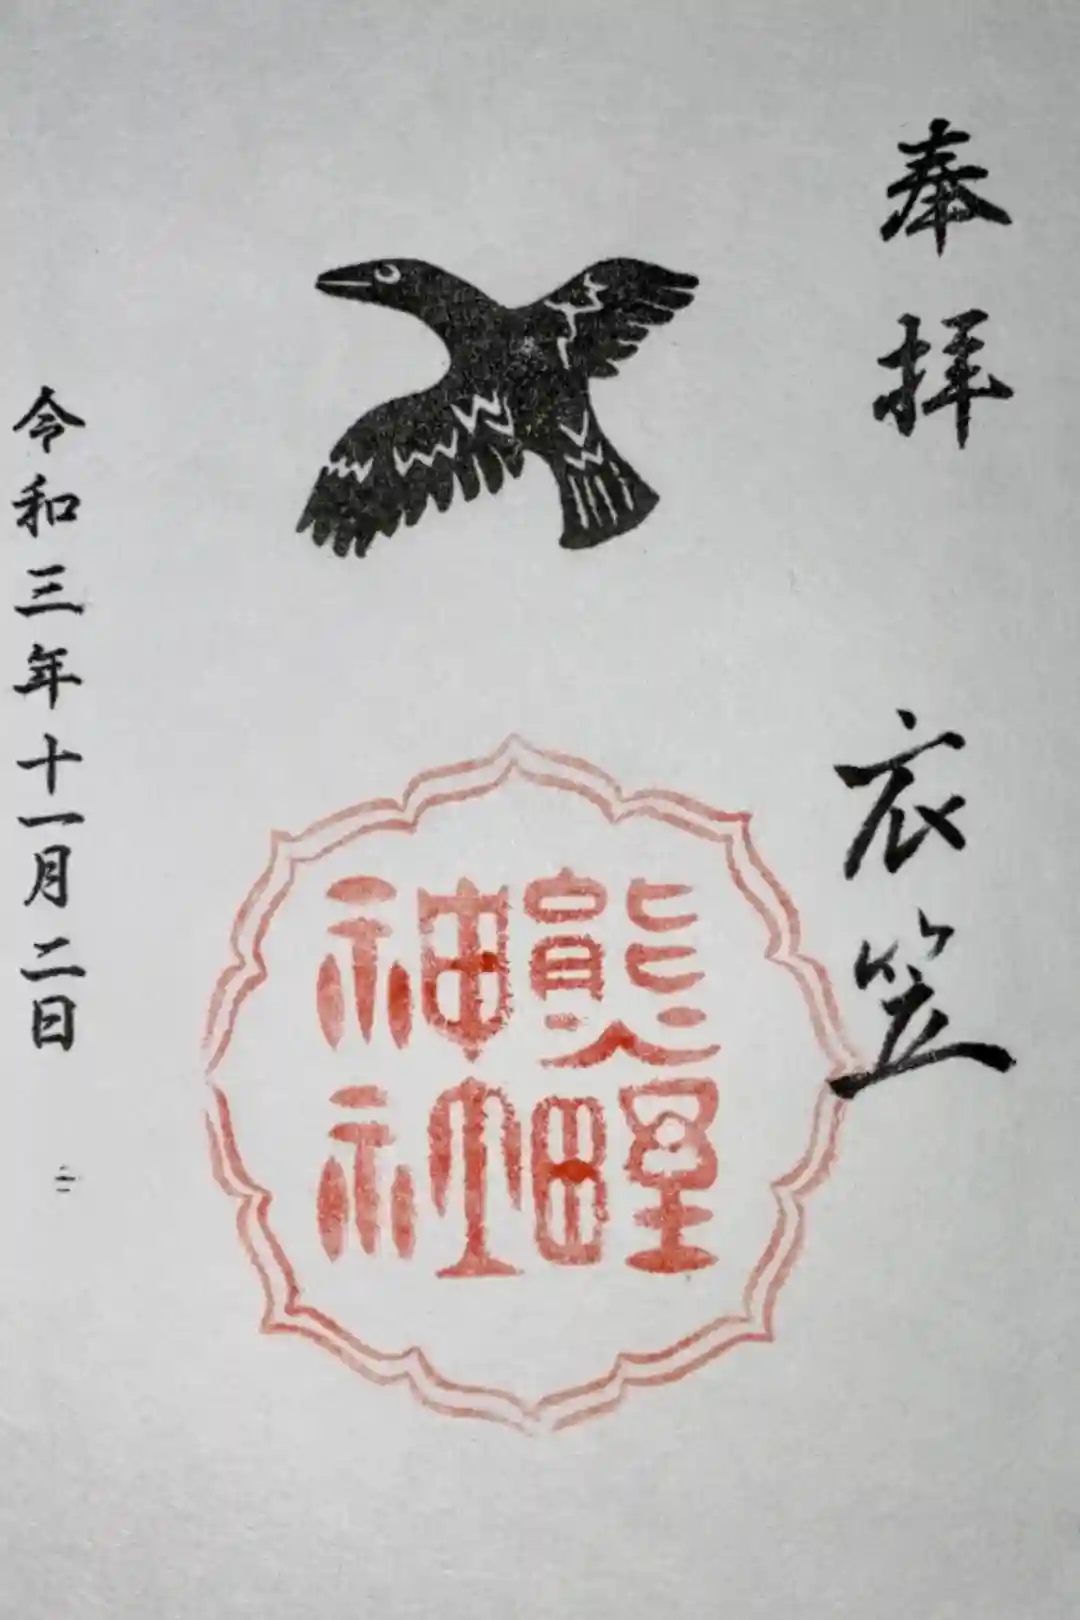 奉拝 衣笠
熊野
神社
令和三年十一月二日